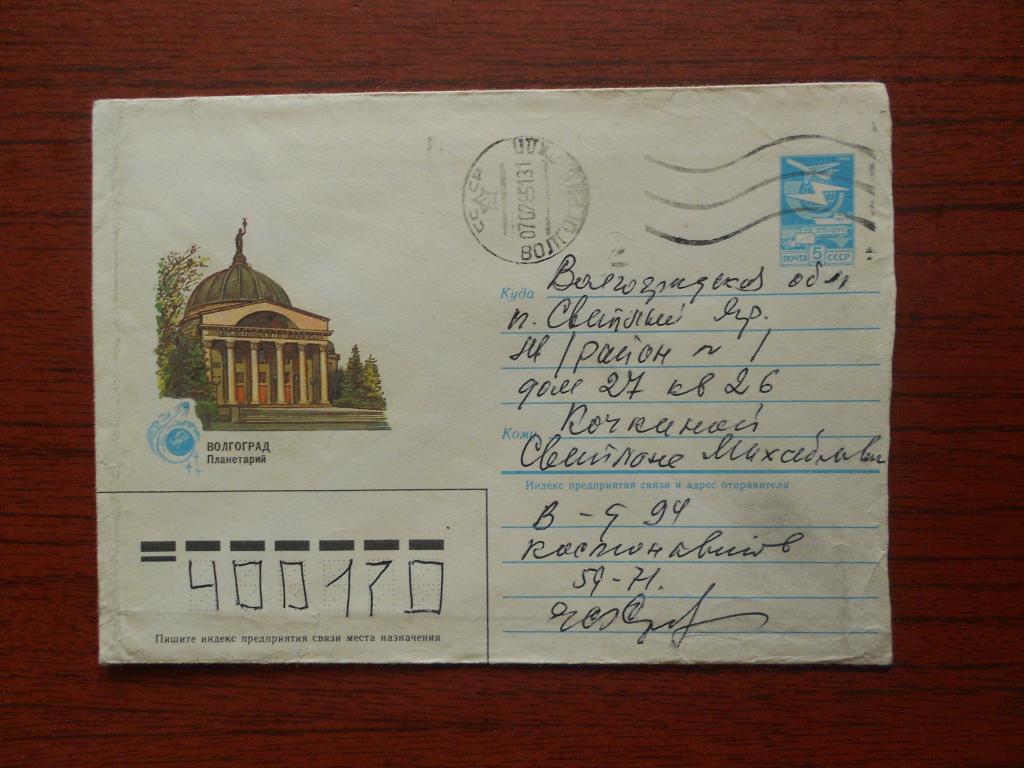 ВОЛГОГРАД
Планетарий
07028513
ВОЛГОГРАД
ПОЧТА 5 СССР
Куда Волгоградская обл
п. Светлый Яр.
М/район № 1
дом 27 кв 26
Кому Кочкиной
Светлане Михайловне
Индекс предприятия связи и адрес отправителя
В - д 94
космонавтов
59-71.
400170
Пишите индекс предприятия связи места назначения